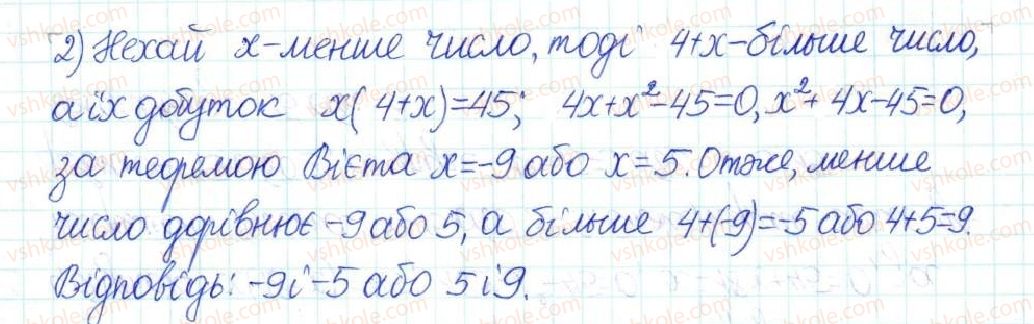 2) Нехай x-менше число, тоді 4+x-більше число,
а їх добуток x(4+x)=45; 4x+x²-45=0, x²+4x-45=0,
за теоремою Вієта x=-9 або x=5. Отже, менше
число дорівнює -9 або 5, а більше 4+(-9)=-5 або 4+5=9.
Відповідь: -9 і -5 або 5 і 9.